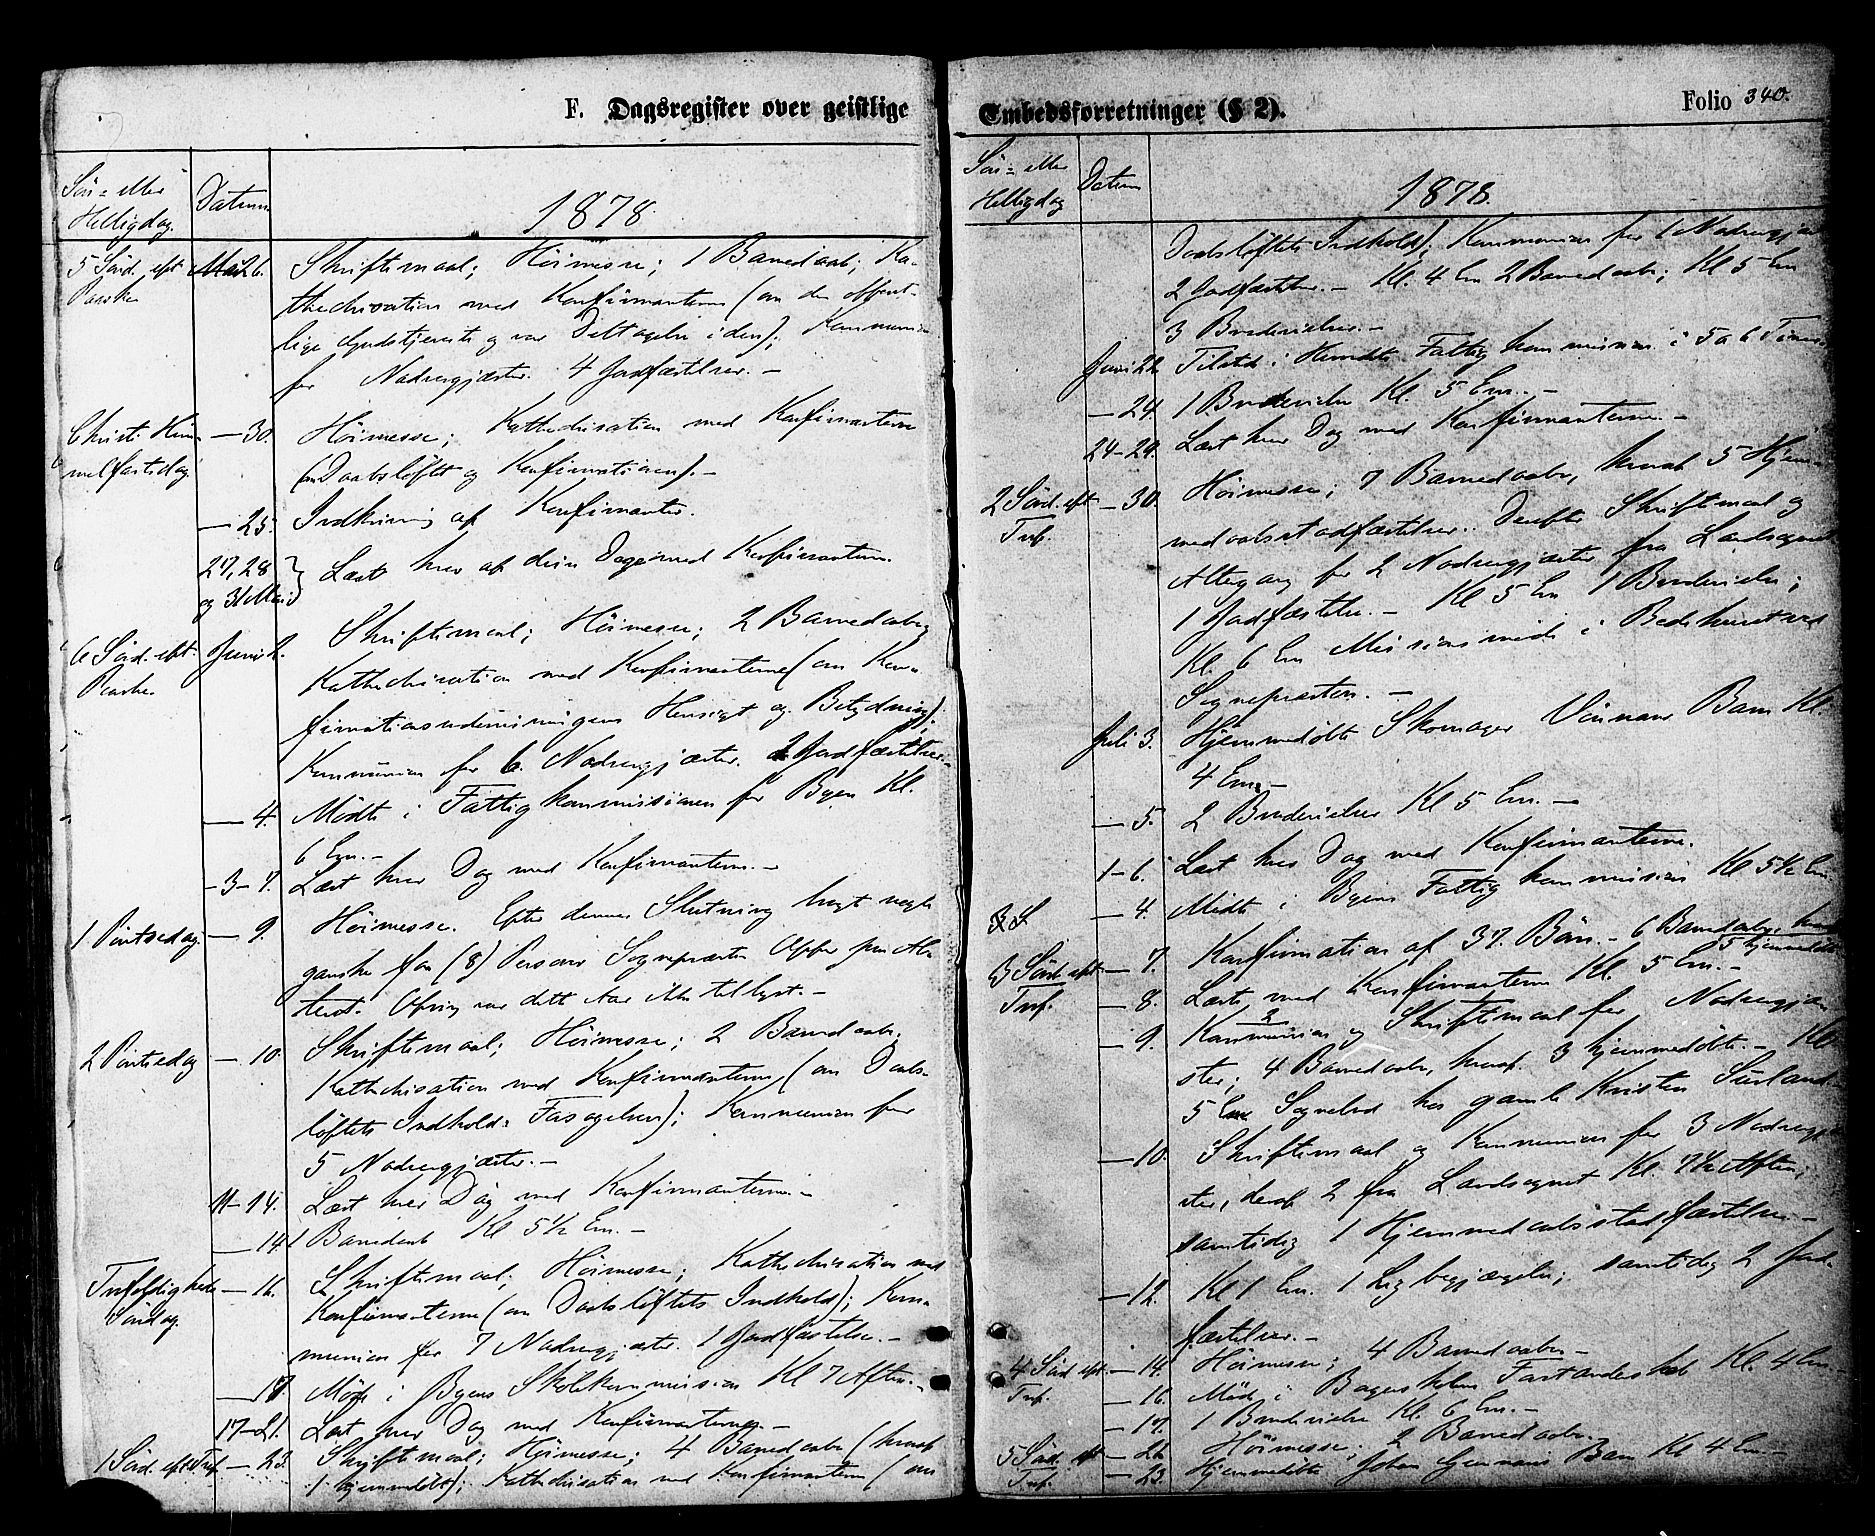 F. Dagsregister over geistlige
Søn- eller Helligdag. Datum 1878.
5 Sønd. eft. Paaske Mai 26. Skriftemaal; Høimesse; 1 Barnedaab; Ka-
thechisation med Konfirmanterne (om den offent-
lige Gudstjeneste og vor Deltagelse i den); Kommunion
for Nadvergjæster. 4 Jordfæstelser. –
Christi Him- — 30. Høimesse; Kathechisation med Konfirmanterne
melfartsdag (om Daabsløftet og Konfirmationen). –
— 25. Indskrivning af Konfirmanter.
27, 28 og 31 Mai } Læst hver af disse Dage med Konfirmanterne.
6 Sønd. eft. Paaske Juni 2. Skriftemaal; Høimesse; 2 Barnedaab;
Kathechisation med Konfirmanterne (om Kon-
firmationsundervisningens Hensigt og Betydning).
Kommunion for 6 Nadvergjæster. 2 Jordfæstelser. –
— 4. Mødte i Fattigkommissionen for Byen Kl.
6 Em. –
– 3 – 7. Læst hver Dag med Konfirmanterne. –
1. Pintsedag. — 9. Høimesse. Efter dennes Slutning bragt nogle
ganske faa (8) Personer Sognepræsten Offer paa Al-
teret. Ofring var dette Aar ikke tillyst. –
2 Pintsedag — 10. Skriftemaal; Høimesse; 2 Barnedaab;
Kathechisation med Konfirmanterne (om Daabs-
løftets Indhold: Forsagelsen); Kommunion for
5 Nadvergjæster. –
11–14. Læst hver Dag med Konfirmanterne. –
— 14. 1 Barnedaab Kl 5½ Em. –
Trefoldigheds Søndag. — 16. Skriftemaal; Høimesse; Kathechisation med
Konfirmanterne (om Daabsløftets Indhold); Kom-
munion for 7 Nadvergjæster. 1 Jordfæstelse. –
— 17. Møde i Byens Skolekommission Kl 7 Aften. –
17–21. Læst hver Dag med Konfirmanterne. –
1 Sønd. eft. Tref. — 23. Skriftemaal; Høimesse; 4 Barnedaab (hvoraf
1 hjemmedøbt); Kathechisation med Konfirmanterne (om
Embedsforretninger (§ 2).
Folio 340.
Søn- eller Helligdag Datum 1878.
Daabsløftets Indhold); Kommunion for 6 Nadvergjæster
2 Jordfæstelser. – Kl. 4 Em 2 Barnedaab; Kl 5 Em
3 Brudevielser. –
Juni 22. Tilstede i Herredets Fattigkommission i 5 a 6 Timer.
— 24. 1 Brudevielse Kl. 5 Em. –
24–29. Læst hver Dag med Konfirmanterne. –
2 Sønd. eft. Tref. — 30. Høimesse; 7 Barnedaab, hvoraf 5 Hjem-
medaabsstadfæstelser. Derefter Skriftemaal og
Altergang for 2 Nadvergjæster fra Landsognet
1 Jordfæstelse. – Kl 5 Em 1 Brudevielse;
Kl. 6 Em Missionsmøde i Bedehuset ved
Sognepræsten. –
Juli 3. Hjemmedøbte Skomager Barn Kl.
4 Em. –
— 5. 2 Brudevielser Kl 5 Em. –
1–6. Læst hver Dag med Konfirmanterne.
— 4. Mødte i Byens Fattigkommission Kl 5½ Em.
3 Sønd. eft. Tref. — 7. Konfirmation af 37 Børn. – 6 Barnedaab, hvoraf
5 hjemmedøbte
— 8. Læste med Konfirmanterne Kl. 5 Em. –
— 9. Kommunion og Skriftemaal for 2 Nadvergjæ-
ster; 4 Barnedaab, hvoraf 3 hjemmedøbte. – Kl
5 Em Sognebud hos gamle Kristen
— 10. Skriftemaal og Kommunion for 3 Nadvergjæ-
ster, deraf 2 fra Landsognet Kl. 7½ Aften;
samtidig 1 Hjemmedaabsstadfæstelse. –
— 12. Kl 1 Em. 1 Ligbegjængelse; samtidig 2 Jord-
fæstelser. –
4 Sønd. eft. Tref. — 14. Høimesse; 4 Barnedaab –
— 16. Møde i Borgerskolens Forstanderskab Kl. 4 Em.
— 17. 1 Brudevielse Kl. 6 Em. –
5 Sønd. eft. Tref. — 21. Høimesse; 2 Barnedaab.
— 23. Hjemmedøbte Johan Barn Kl 4 Em –